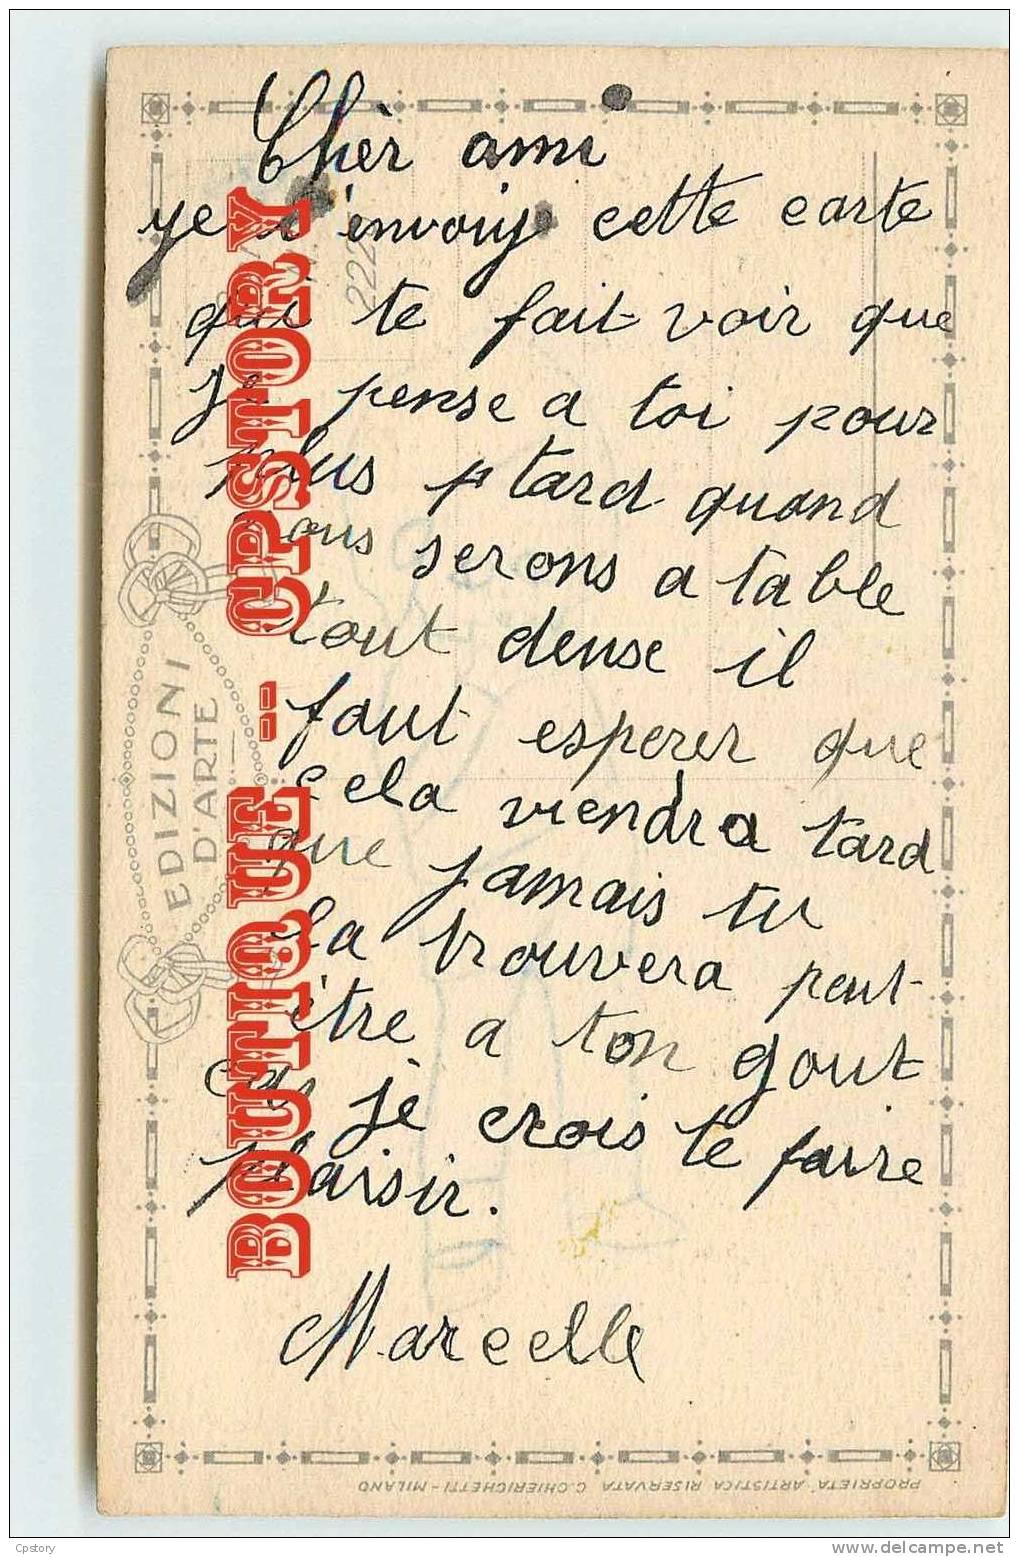 Chèr ami
ye t'envoiy cette carte
qui te fait voir que
je pense a toi pour
plus p tard quand
nous serons a table
tout dense il
faut esperer que
cela viendra tard
que jamais tu
la trouvera peut-
être a ton gout
car je crois te faire
plaisir.
Marcelle
EDIZIONI
D'ARTE
222
BOUTIQUE -- CPSTORY
PROPRIETA' ARTISTICA RISERVATA C. CHIERICHETTI - MILANO
Cpstory
www.delcampe.net